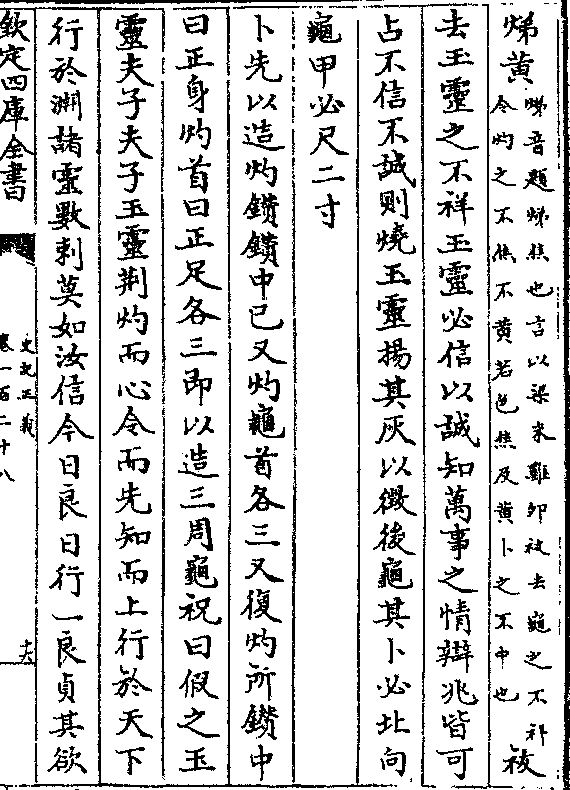 焍黃
焍音題焍焦也言以梁米雞卵祓去龜之不祥
令灼之不焦不黃若色焦及黃卜之不中也
祓
去玉靈之不祥玉靈必信以誠知萬事之情辯兆皆可
占不信不誠則燒玉靈揚其灰以徵後龜其卜必北向
龜甲必尺二寸
卜先以造灼鑽鑽中已又灼龜首各三又復灼所鑽中
曰正身灼首曰正足各三即以造三周龜祝曰假之玉
靈夫子夫子玉靈荆灼而心令而先知而上行於天下
行於淵諸靈數刺莫如汝信今日良日行一良貞其欲
欽定四庫全書
史記正義
卷一百二十八
十六